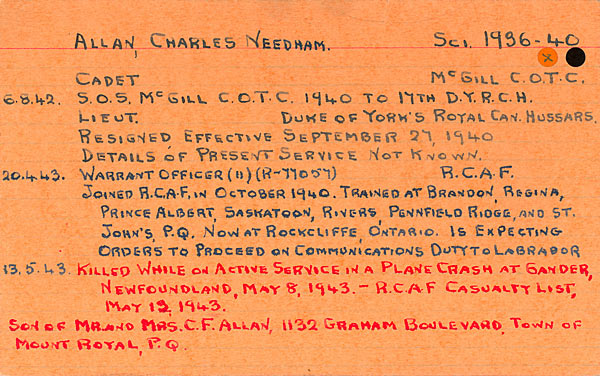 ALLAN, CHARLES NEEDHAM. SCI. 1936-40
x
CADET McGILL C.O.T.C.
6.8.42. S.O.S. McGILL C.O.T.C. 1940 TO 17TH D.Y.R.C.H.
LIEUT. DUKE OF YORK'S ROYAL CAN. HUSSARS.
RESIGNED EFFECTIVE SEPTEMBER 27, 1940
DETAILS OF PRESENT SERVICE NOT KNOWN.
20.4.43. WARRANT OFFICER (II) (R-77057) R.C.A.F.
JOINED R.C.A.F. IN OCTOBER 1940. TRAINED AT BRANDON, REGINA,
PRINCE ALBERT, SASKATOON, RIVERS, PENNFIELD RIDGE, AND ST.
JOHN'S, P.Q. NOW AT ROCKCLIFFE, ONTARIO. IS EXPECTING
ORDERS TO PROCEED ON COMMUNICATIONS DUTY TO LABRADOR
13.5.43. KILLED WHILE ON ACTIVE SERVICE IN A PLANE CRASH AT GANDER,
NEWFOUNDLAND, MAY 8, 1943. – R.C.A.F CASUALTY LIST,
MAY 12, 1943.
SON OF MR. AND MRS. C.F. ALLAN, 1132 GRAHAM BOULEVARD, TOWN OF
MOUNT ROYAL, P.Q.